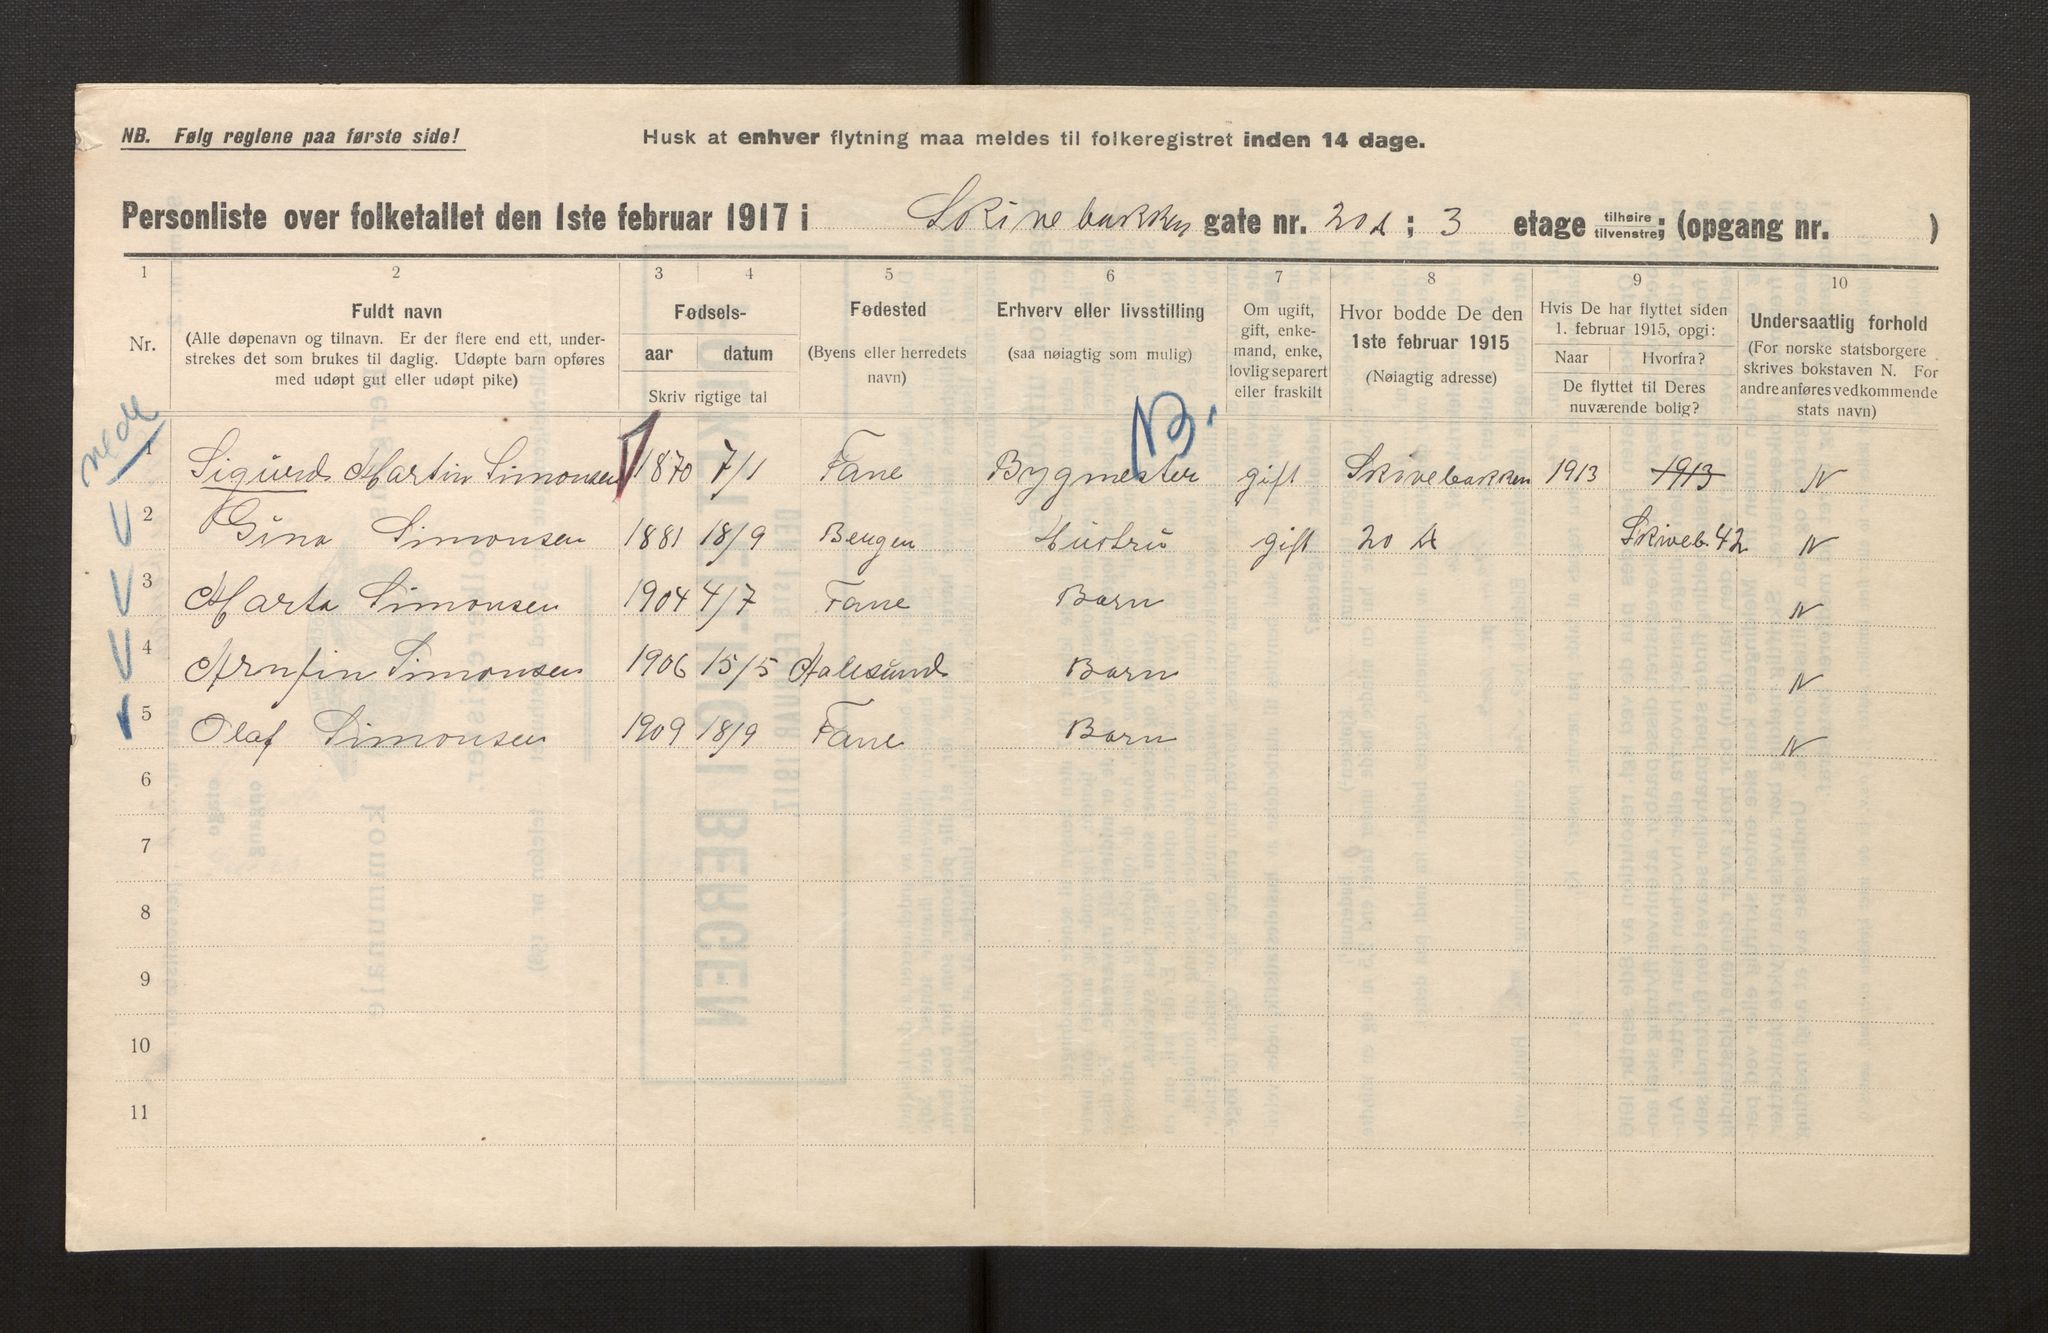 NB. Følg reglene paa første side!
Husk at enhver flytning maa meldes til folkeregistret inden 14 dage.
Personliste over folketallet den 1ste februar 1917 i Skivebakken gate nr. 20 A; 3 etage tilhøire tilvenstre; (opgang nr. )
1 2 3 4 5 6 7 8 9 10
Nr.
Fuldt navn
(Alle døpenavn og tilnavn. Er der flere end ett, under-
strekes det som brukes til daglig. Udøpte barn opføres
med udøpt gut eller udøpt pike)
Fødsels-
aar datum
Skriv rigtige tal
Fødested
(Byens eller herredets
navn)
Erhverv eller livsstilling
(saa nøiagtig som mulig)
Om ugift,
gift, enke-
mand, enke,
lovlig separert
eller fraskilt
Hvor bodde De den
1ste februar 1915
(Nøiagtig adresse)
Hvis De har flyttet siden
1. februar 1915, opgi:
Naar Hvorfra?
De flyttet til Deres
nuværende bolig?
Undersaatlig forhold
(For norske statsborgere
skrives bokstaven N. For
andre anføres vedkommende
stats navn)
nede
N B.
1 Sigurd Martin Simonsen 1870 7/1 Fane Bygmester gift Skivebakken 1913 1913 N
2 Gina Simonsen 1881 18/9 Bergen Hustru gift 20 A Skiveb. 42 N
3 Marta Simonsen 1904 4/7 Fane Barn N
4 Arnfin Simonsen 1906 15/5 Aalesund Barn N
5 Olaf Simonsen 1909 18/9 Fane Barn N
6
7
8
9
10
11